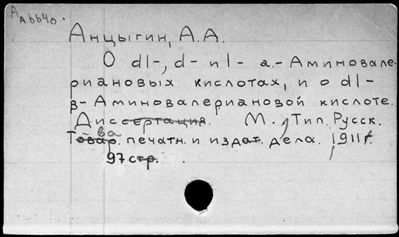 AAbb40.
Анцыгин, А.А.
О dl-, d- и l- а.- Аминовале-
риановых кислотах, и о dl-
β-Аминовалериановой кислоте.
Диссертация. М., Тип. Русск.
Т-ва печатн. и издат. дела. 1911 г.
97 стр.